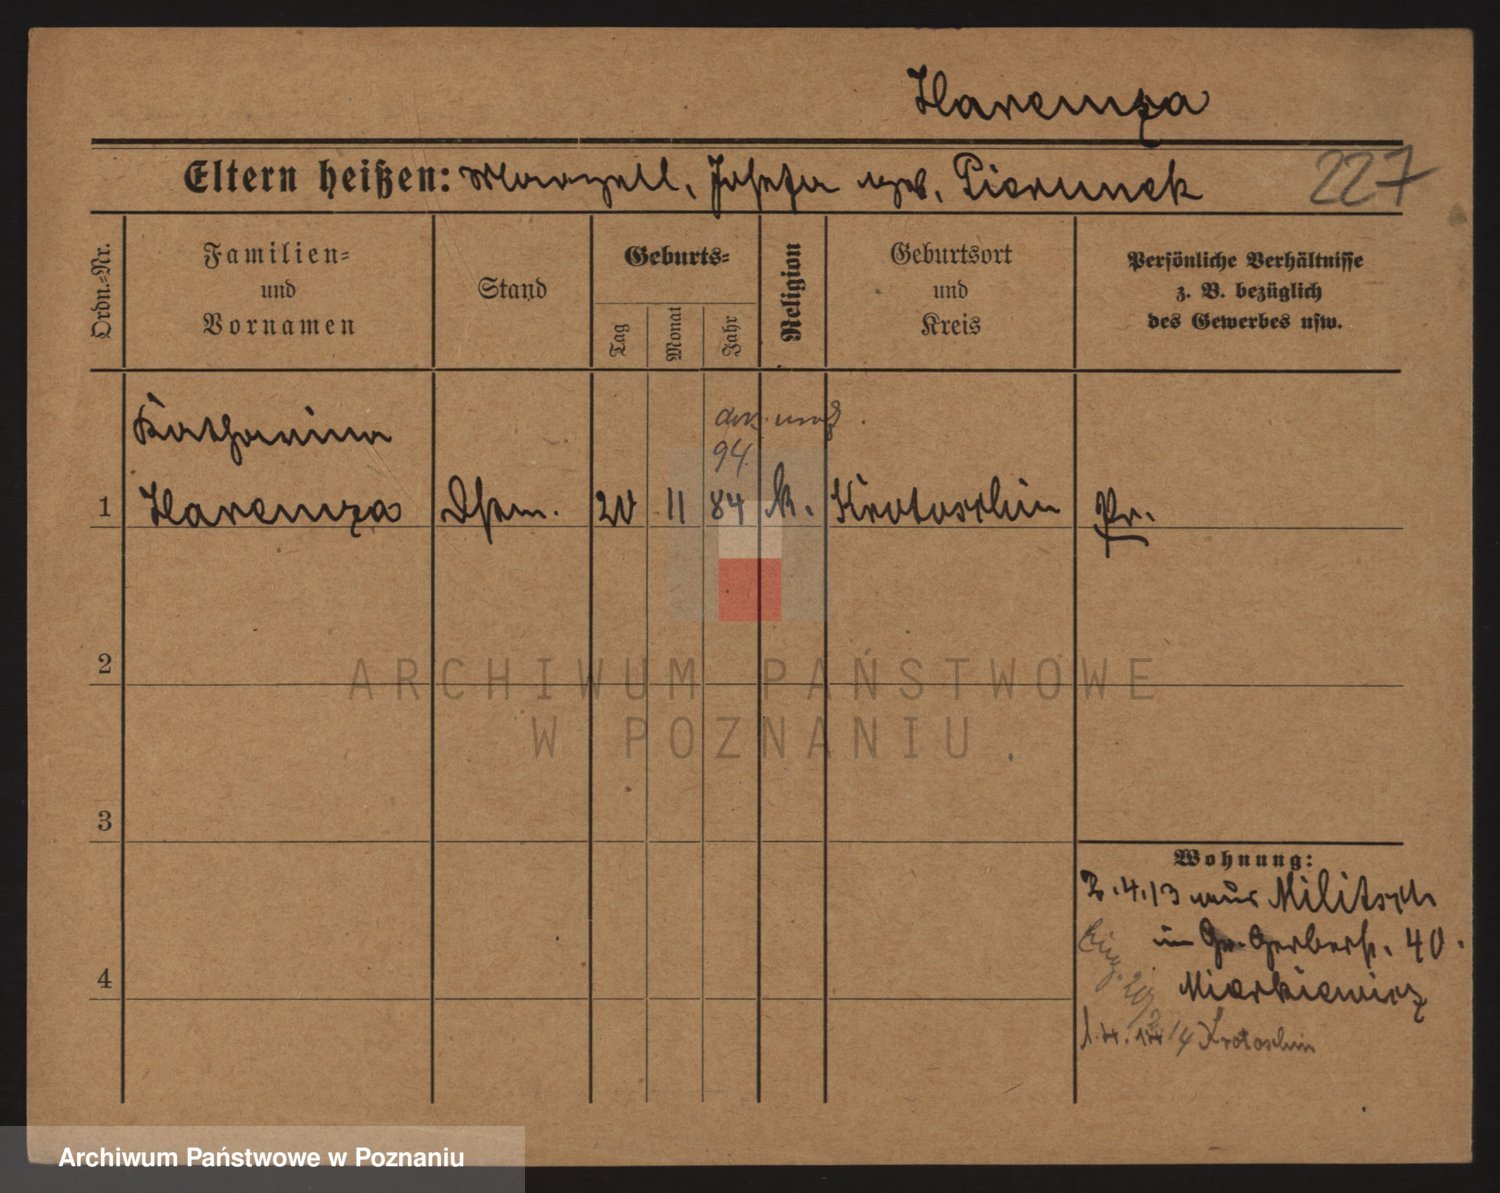 Haremza
Eltern heißen: Marzell, Josefa geb. Pierunek
227
Ordn.-Nr.
Familien-
und
Vornamen
Stand
Geburts-
Tag
Monat
Jahr
Religion
Geburtsort
und
Kreis
Persönliche Verhältnisse
z. B. bezüglich
des Gewerbes usw.
Katharina
94
1 Haremza Dstm. 20 11 84 k. Krotoschin Pr.
2
ARCHIWUM PAŃSTWOWE
W POZNANIU
3
Wohnung:
2.4.13 aus Militsch
in Gr. Gerberstr. 40.
4
Mierkiewicz
14 Krotoschin
Archiwum Państwowe w Poznaniu